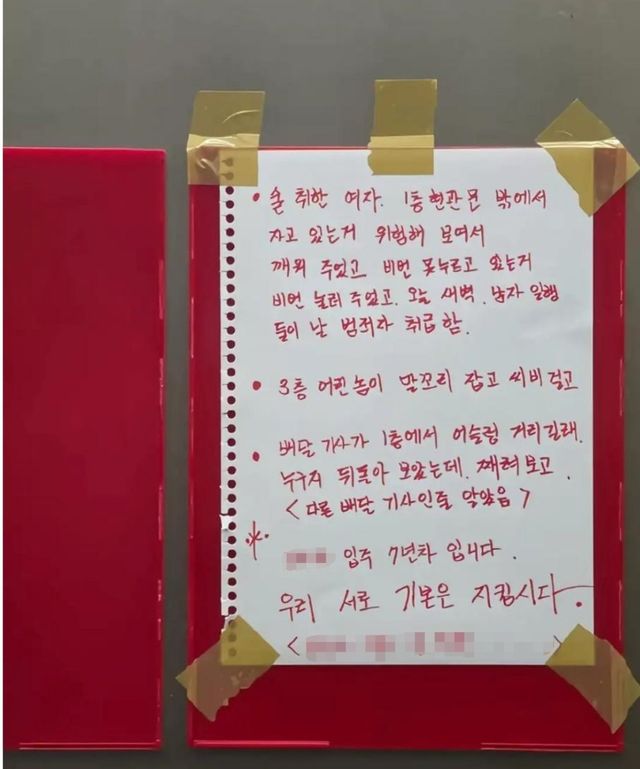 • 술 취한 여자. 1층 현관문 밖에서
자고 있는거 위험해 보여서
깨워 주었고 비번 못누르고 있는거
비번 눌러 주었고. 오늘 새벽. 남자 일행
들이 난 범죄자 취급함.
• 3층 어린놈이 말꼬리 잡고 씨비 걸고
• 배달 기사가 1층에서 어슬렁 거리길래.
누구지 뒤돌아 보았는데. 째려보고.
<다른 배달 기사인줄 알았음>
※
입주 7년차 입니다.
우리 서로 기본은 지킵시다.
< >